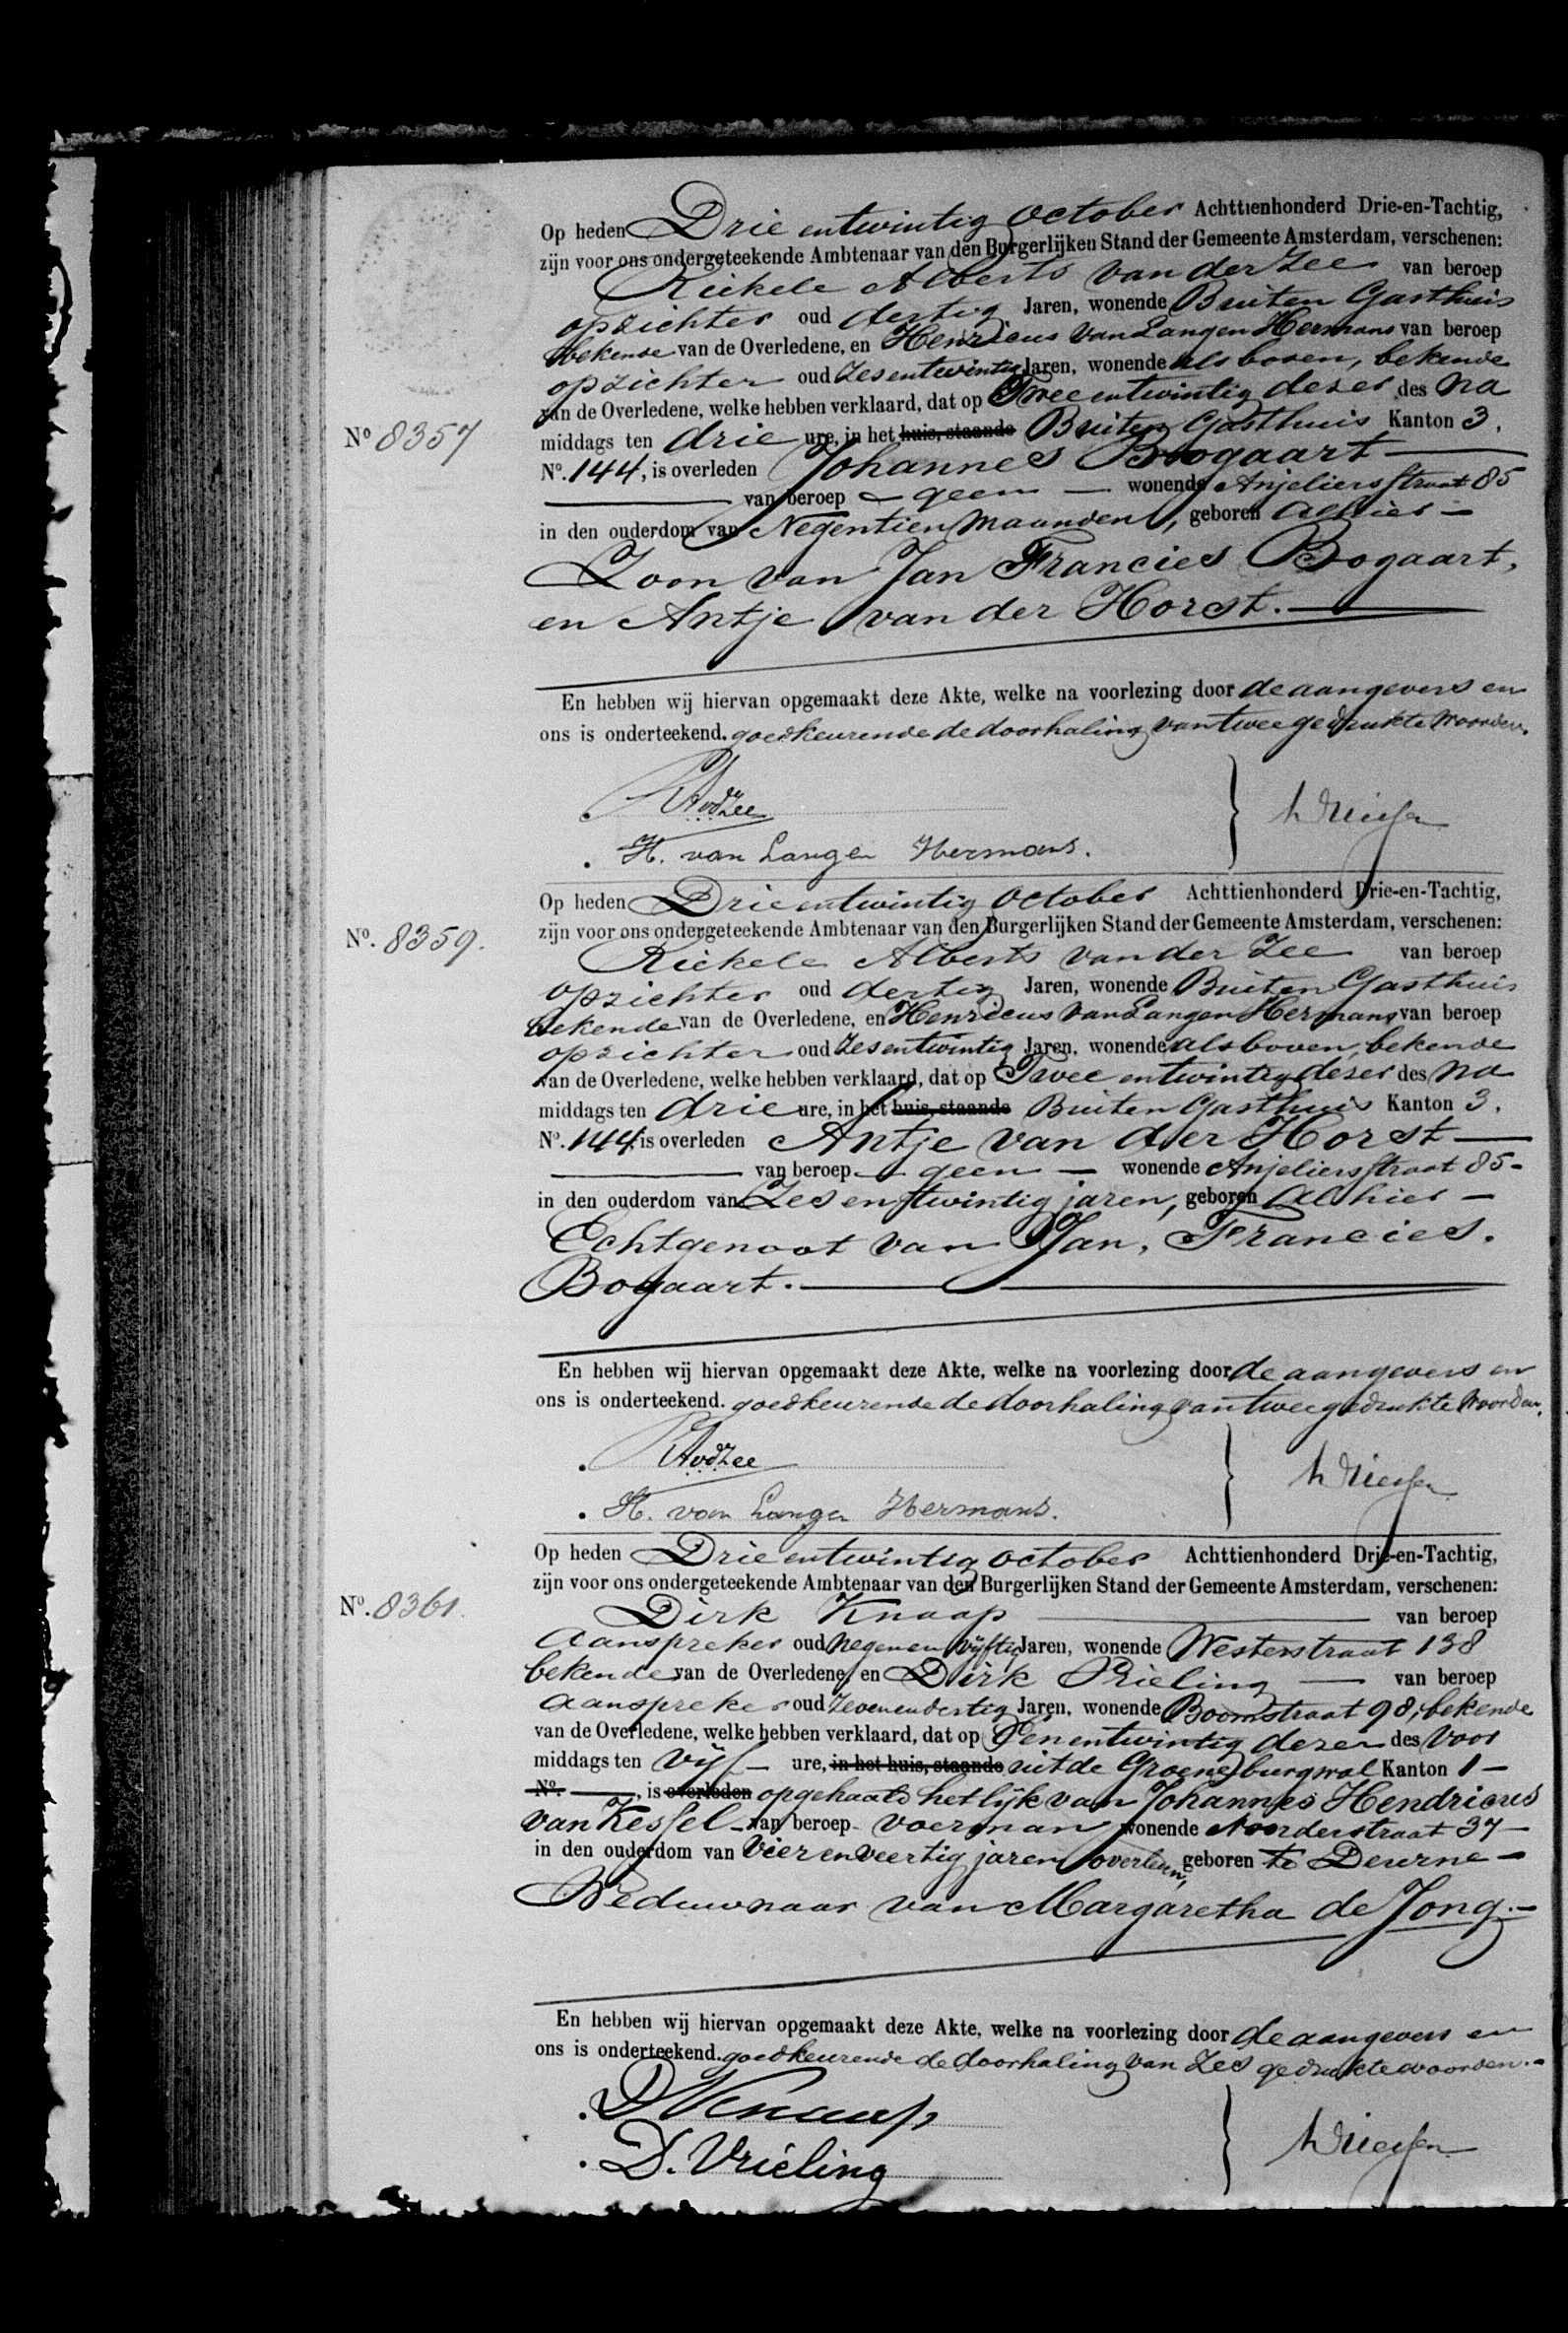 Op heden Drie entwintig October Achttienhonderd Drie-en-Tachtig,
zijn voor ons ondergeteekende Ambtenaar van den Burgerlijken Stand der Gemeente Amsterdam, verschenen:
Riekele Alberts van der Zee van beroep
opzichter oud dertig Jaren, wonende Buiten Gasthuis
bekende van de Overledene, en Henricus van Langen Hermans van beroep
opzichter oud Zesentwintig Jaren, wonende als boven, bekende
van de Overledene, welke hebben verklaard, dat op Twee entwintig dezer des na
No 8357
middags ten drie ure, in het huis, staande Buiten Gasthuis Kanton 3.
No. 144, is overleden Johannes Boogaart
van beroep geen wonende Anjeliersstraat 85
in den ouderdom van Negentien maanden, geboren alhier
Zoon van Jan Francies Bogaart,
en Antje van der Horst.
En hebben wij hiervan opgemaakt deze Akte, welke na voorlezing door de aangevers en
ons is onderteekend. goedkeurende de doorhaling van twee gedrukte woorden.
RAvdZee
H. van Langen Hermans.
Op heden Drie entwintig October Achttienhonderd Drie-en-Tachtig,
No. 8359.
zijn voor ons ondergeteekende Ambtenaar van den Burgerlijken Stand der Gemeente Amsterdam, verschenen:
Riekele Alberts van der Zee van beroep
opzichter oud dertig Jaren, wonende Buiten Gasthuis
bekende van de Overledene, en Henricus van Langen Hermans van beroep
opzichter oud Zesentwintig Jaren, wonende als boven, bekende
van de Overledene, welke hebben verklaard, dat op Twee entwintig dezer des na
middags ten drie ure, in het huis, staande Buiten Gasthuis Kanton 3.
No. 144, is overleden Antje van der Horst
van beroep geen wonende Anjeliersstraat 85
in den ouderdom van Zes en twintig jaren, geboren alhier
Echtgenoot van Jan, Francies.
Bogaart.
En hebben wij hiervan opgemaakt deze Akte, welke na voorlezing door de aangevers en
ons is onderteekend. goedkeurende de doorhaling van twee gedrukte woorden.
RAvdZee
H. van Langen Hermans.
Op heden Drie entwintig October Achttienhonderd Drie-en-Tachtig,
zijn voor ons ondergeteekende Ambtenaar van den Burgerlijken Stand der Gemeente Amsterdam, verschenen:
No. 8361.
Dirk Knaap van beroep
Aanspreker oud negenenvijftig Jaren, wonende Westerstraat 138
bekende van de Overledene, en Dirk Vrieling van beroep
aanspreker oud Zevenendertig Jaren, wonende Boomstraat 98, bekende
van de Overledene, welke hebben verklaard, dat op Eenentwintig dezer des voor
middags ten vijf ure, in het huis, staande uit de Groeneburgwal Kanton 1
No. , is overleden opgehaald het lijk van Johannes Hendricus
van Kessel van beroep voerman wonende Noorderstraat 37
in den ouderdom van Vier en veertig jaren overleden, geboren te Deurne
Weduwnaar van Margaretha de Jong.
En hebben wij hiervan opgemaakt deze Akte, welke na voorlezing door de aangevers en
ons is onderteekend. goedkeurende de doorhaling van Zes gedrukte woorden.
D Knaap
D. Vrieling